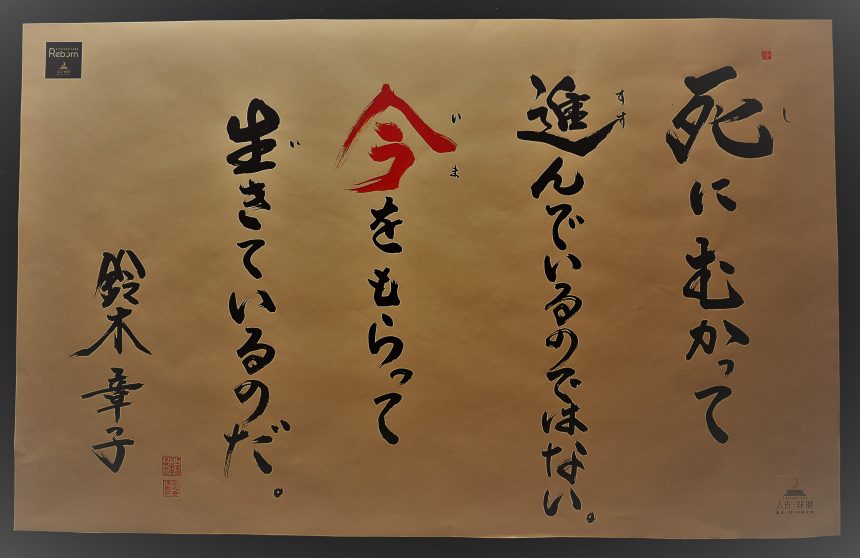 死にむかって
し
進んでいるのではない。
すす
今をもらって
いま
生きているのだ。
い
鈴木章子
Reborn
人吉 球磨